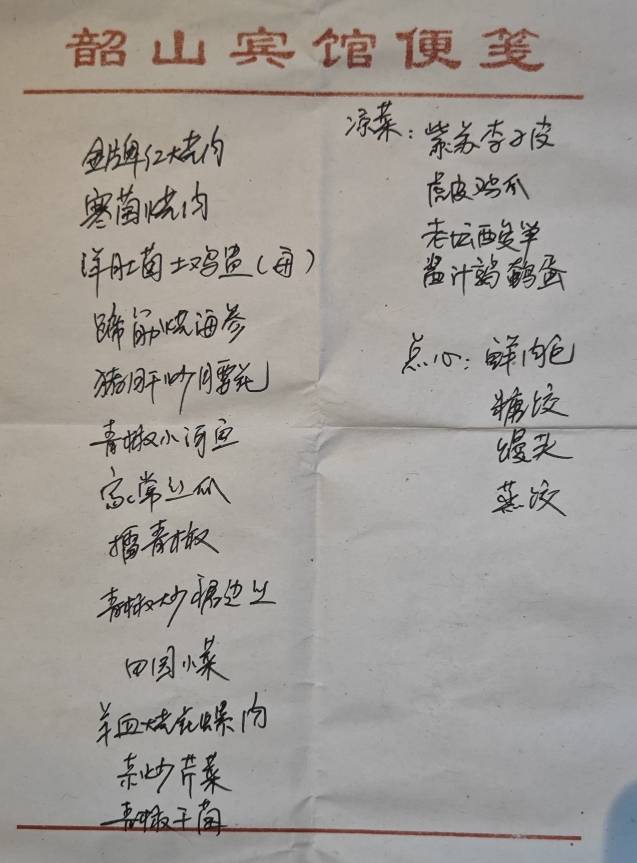 韶山宾馆便笺
金牌红烧肉
寒菌烧肉
洋肚菌土鸡煲(每)
蹄筋烧海参
猪肝炒腰花
青椒小河鱼
家常丝瓜
擂青椒
青椒炒裙边丝
田园小菜
羊血烧田螺肉
素炒芹菜
青椒干菌
凉菜:紫苏李子皮
虎皮鸡爪
老坛酸笋
酱汁鹌鹑蛋
点心:鲜肉包
糖饺
馒头
蒸饺